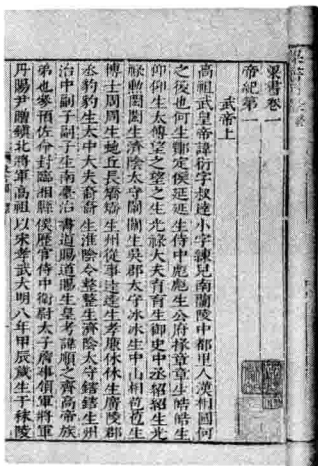 梁書卷一
帝紀第一
武帝上
高祖武皇帝諱衍字叔達小字練兒南蘭陵中都里人漢相國何
之後也何生酇定侯延延生侍中彪彪生公府掾章章生皓皓生
仰仰生太傅望之望之生光祿大夫育育生御史中丞紹紹生光
祿勳閎閎生濟陰太守闡闡生吳郡太守冰冰生中山相苞苞生
博士周周生蛇丘長矯矯生州從事逵逵生孝廉休休生廣陵郡
丞豹豹生太中大夫裔裔生淮陰令整整生濟陰太守鎋鎋生州
治中副子副子生南臺治書道賜道賜生皇考諱順之齊高帝族
弟也參預佐命封臨湘縣侯歷官侍中衛尉太子詹事領軍將軍
丹陽尹贈鎮北將軍高祖以宋孝武大明八年甲辰歲生于秣陵